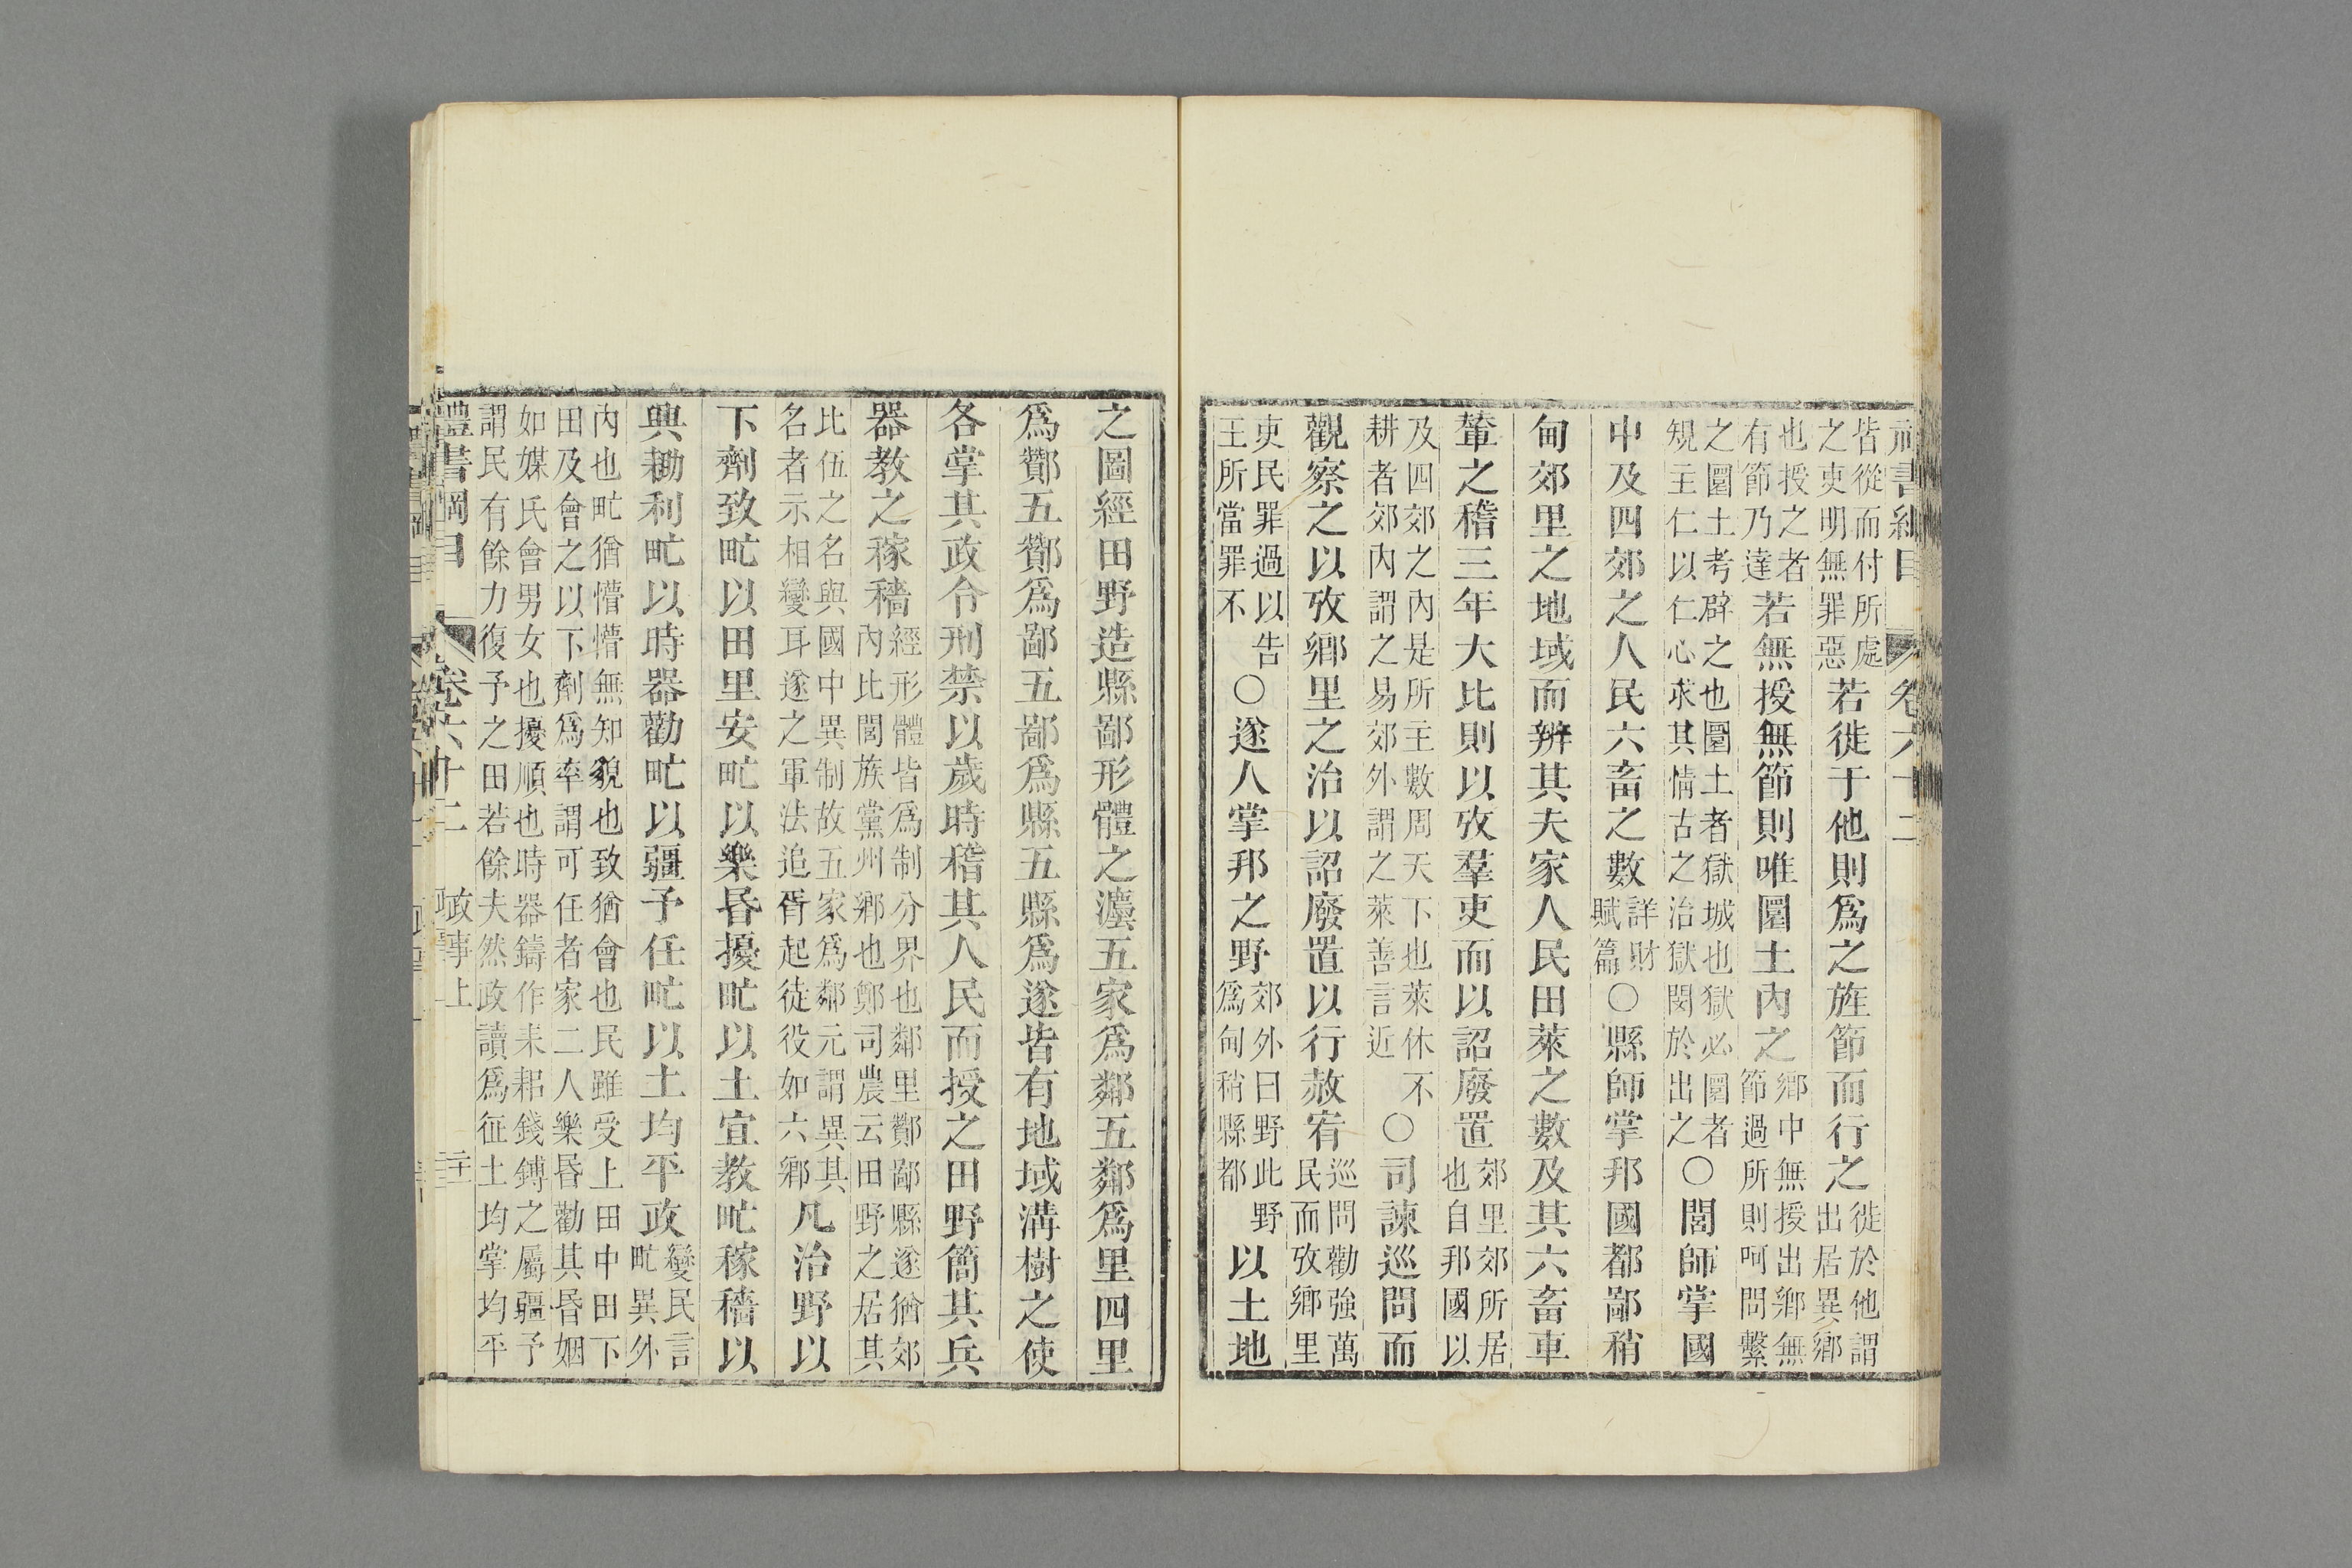 皆從而付所處
之吏明無罪惡
若徙于他則爲之旌節而行之
徙於他謂
出居異鄉
也授之者
有節乃達
若無授無節則唯圜土內之
鄉中無授出鄉無
節過所則呵問繫
之圜土考辟之也圜土者獄城也獄必圜者
規主仁以仁心求其情古之治獄閔於出之
○閭師掌國
中及四郊之人民六畜之數
詳財
賦篇
○縣師掌邦國都鄙稍
甸郊里之地域而辨其夫家人民田萊之數及其六畜車
輦之稽三年大比則以攷羣吏而以詔廢置
郊里郊所居
也自邦國以
及四郊之內是所主數周天下也萊休不
耕者郊內謂之易郊外謂之萊善言近
○司諫巡問而
觀察之以攷鄉里之治以詔廢置以行赦宥
巡問勸強萬
民而攷鄉里
吏民罪過以告
王所當罪不
○遂人掌邦之野
郊外曰野此野
爲甸稍縣都
以土地
之圖經田野造縣鄙形體之灋五家爲鄰五鄰爲里四里
爲酇五酇爲鄙五鄙爲縣五縣爲遂皆有地域溝樹之使
各掌其政令刑禁以歲時稽其人民而授之田野簡其兵
器教之稼穡
經形體皆爲制分界也鄰里酇鄙縣遂猶郊
內比閭族黨州鄉也鄭司農云田野之居其
比伍之名與國中異制故五家爲鄰元謂異其
名者示相變耳遂之軍法追胥起徒役如六鄉
凡治野以
下劑致甿以田里安甿以樂昏擾甿以土宜教甿稼穡以
興耡利甿以時器勸甿以疆予任甿以土均平政
變民言
甿異外
內也甿猶懵懵無知貌也致猶會也民雖受上田中田下
田及會之以下劑爲率謂可任者家二人樂昏勸其昏姻
如媒氏會男女也擾順也時器鑄作耒耜錢鎛之屬疆予
謂民有餘力復予之田若餘夫然政讀爲征土均掌均平
禮書綱目 卷六十二 政事上